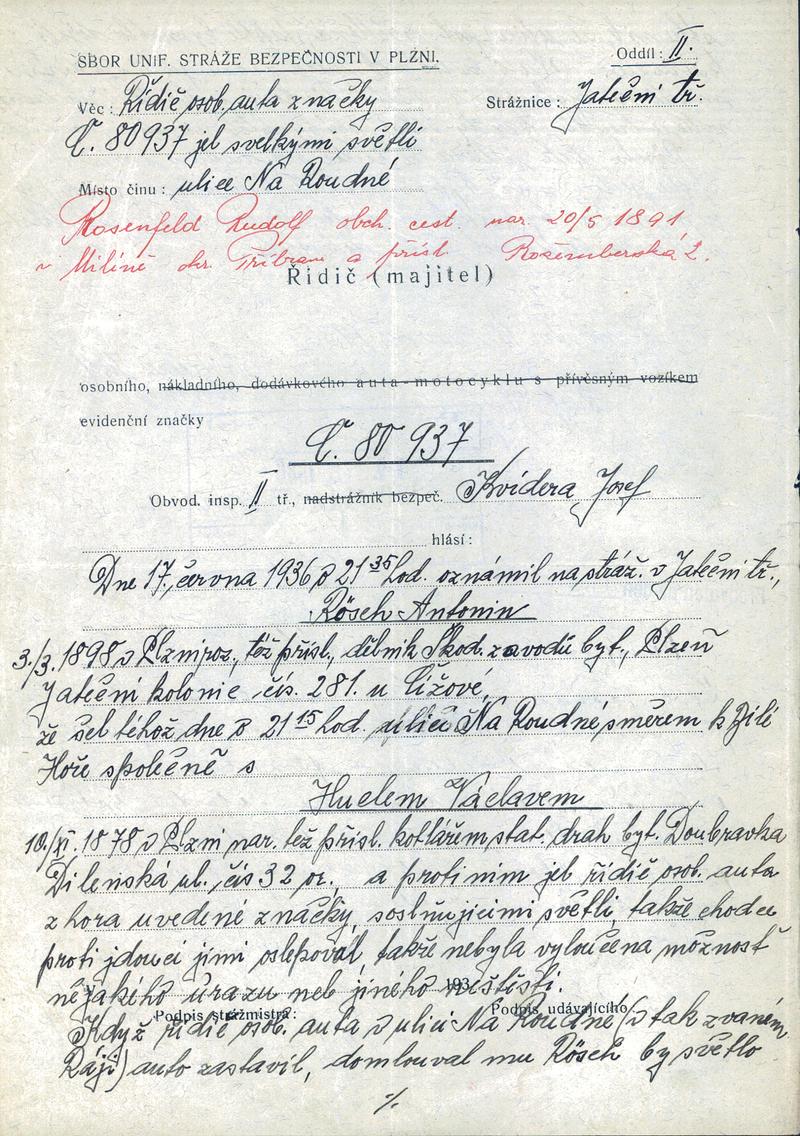 SBOR UNIF. STRÁŽE BEZPEČNOSTI V PLZNI.
Oddíl: II.
Věc: Řidič osob. auta značky
Strážnice: Jateční tř.
Č. 80937 jel s velkými světli
Místo činu: ulice Na Roudné
Rosenfeld Rudolf obch. cest. nar. 20/5 1891
v Milíně okr. Příbram a přísl. Rožemberská 2.
Řidič (majitel)
osobního, nákladního, dodávkového auta-motocyklu s přívěsným vozíkem
evidenční značky
Č. 80 937
Obvod. insp. II tř., nadstrážník bezpeč. Kvidera Josef
hlásí:
Dne 17. června 1936 o 21 35 hod. oznámil na stráž. v Jateční tř.,
Rösch Antonin
3./3. 1898 v Plzni roz., též přísl., dělník Škod. zavodů byt., Plzeň
Jateční kolonie čís. 281. u Cížové,
že šel téhož dne o 21 15 hod. ulicí Na Roudné směrem k Bílé
Hoře společně s
Huclem Václavem
10./XI. 1878 v Plzni nar. též přísl. kotlářem stat. drah byt. Doubravka
Dílenská ul. čís 32 or., a proti nim jel řidič osob. auta
z hora uvedené značky, soslňujícími světli, takže chodce
proti jdoucí jimi oslepoval, takže nebyla vyloučena možnost
nějakého úrazu neb jiného neštěstí.
193
Podpis strážmistra:
Podpis udávajícího
Když řidič osob. auta v ulici Na Roudné (v tak zvaném
Ráji) auto zastavil, domlouval mu Rösch by světlo
./.